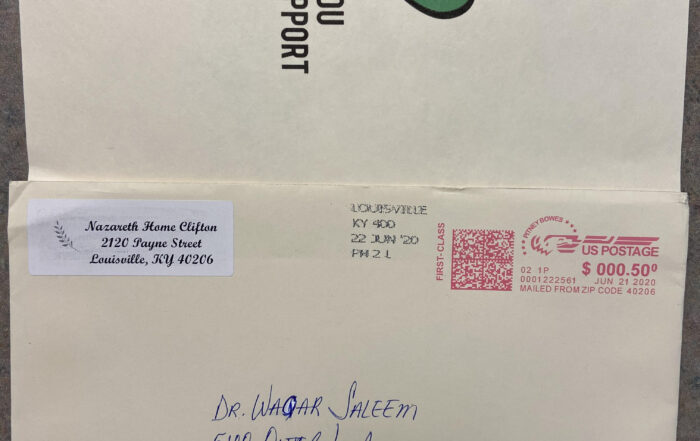 YOU
SUPPORT
Nazareth Home Clifton
2120 Payne Street
Louisville, KY 40206
LOUISVILLE
KY 400
22 JUN '20
PM 2 L
FIRST-CLASS
PITNEY BOWES
US POSTAGE
$ 000.50⁰
02 1P
0001222561 JUN 21 2020
MAILED FROM ZIP CODE 40206
DR. WAQAR SALEEM